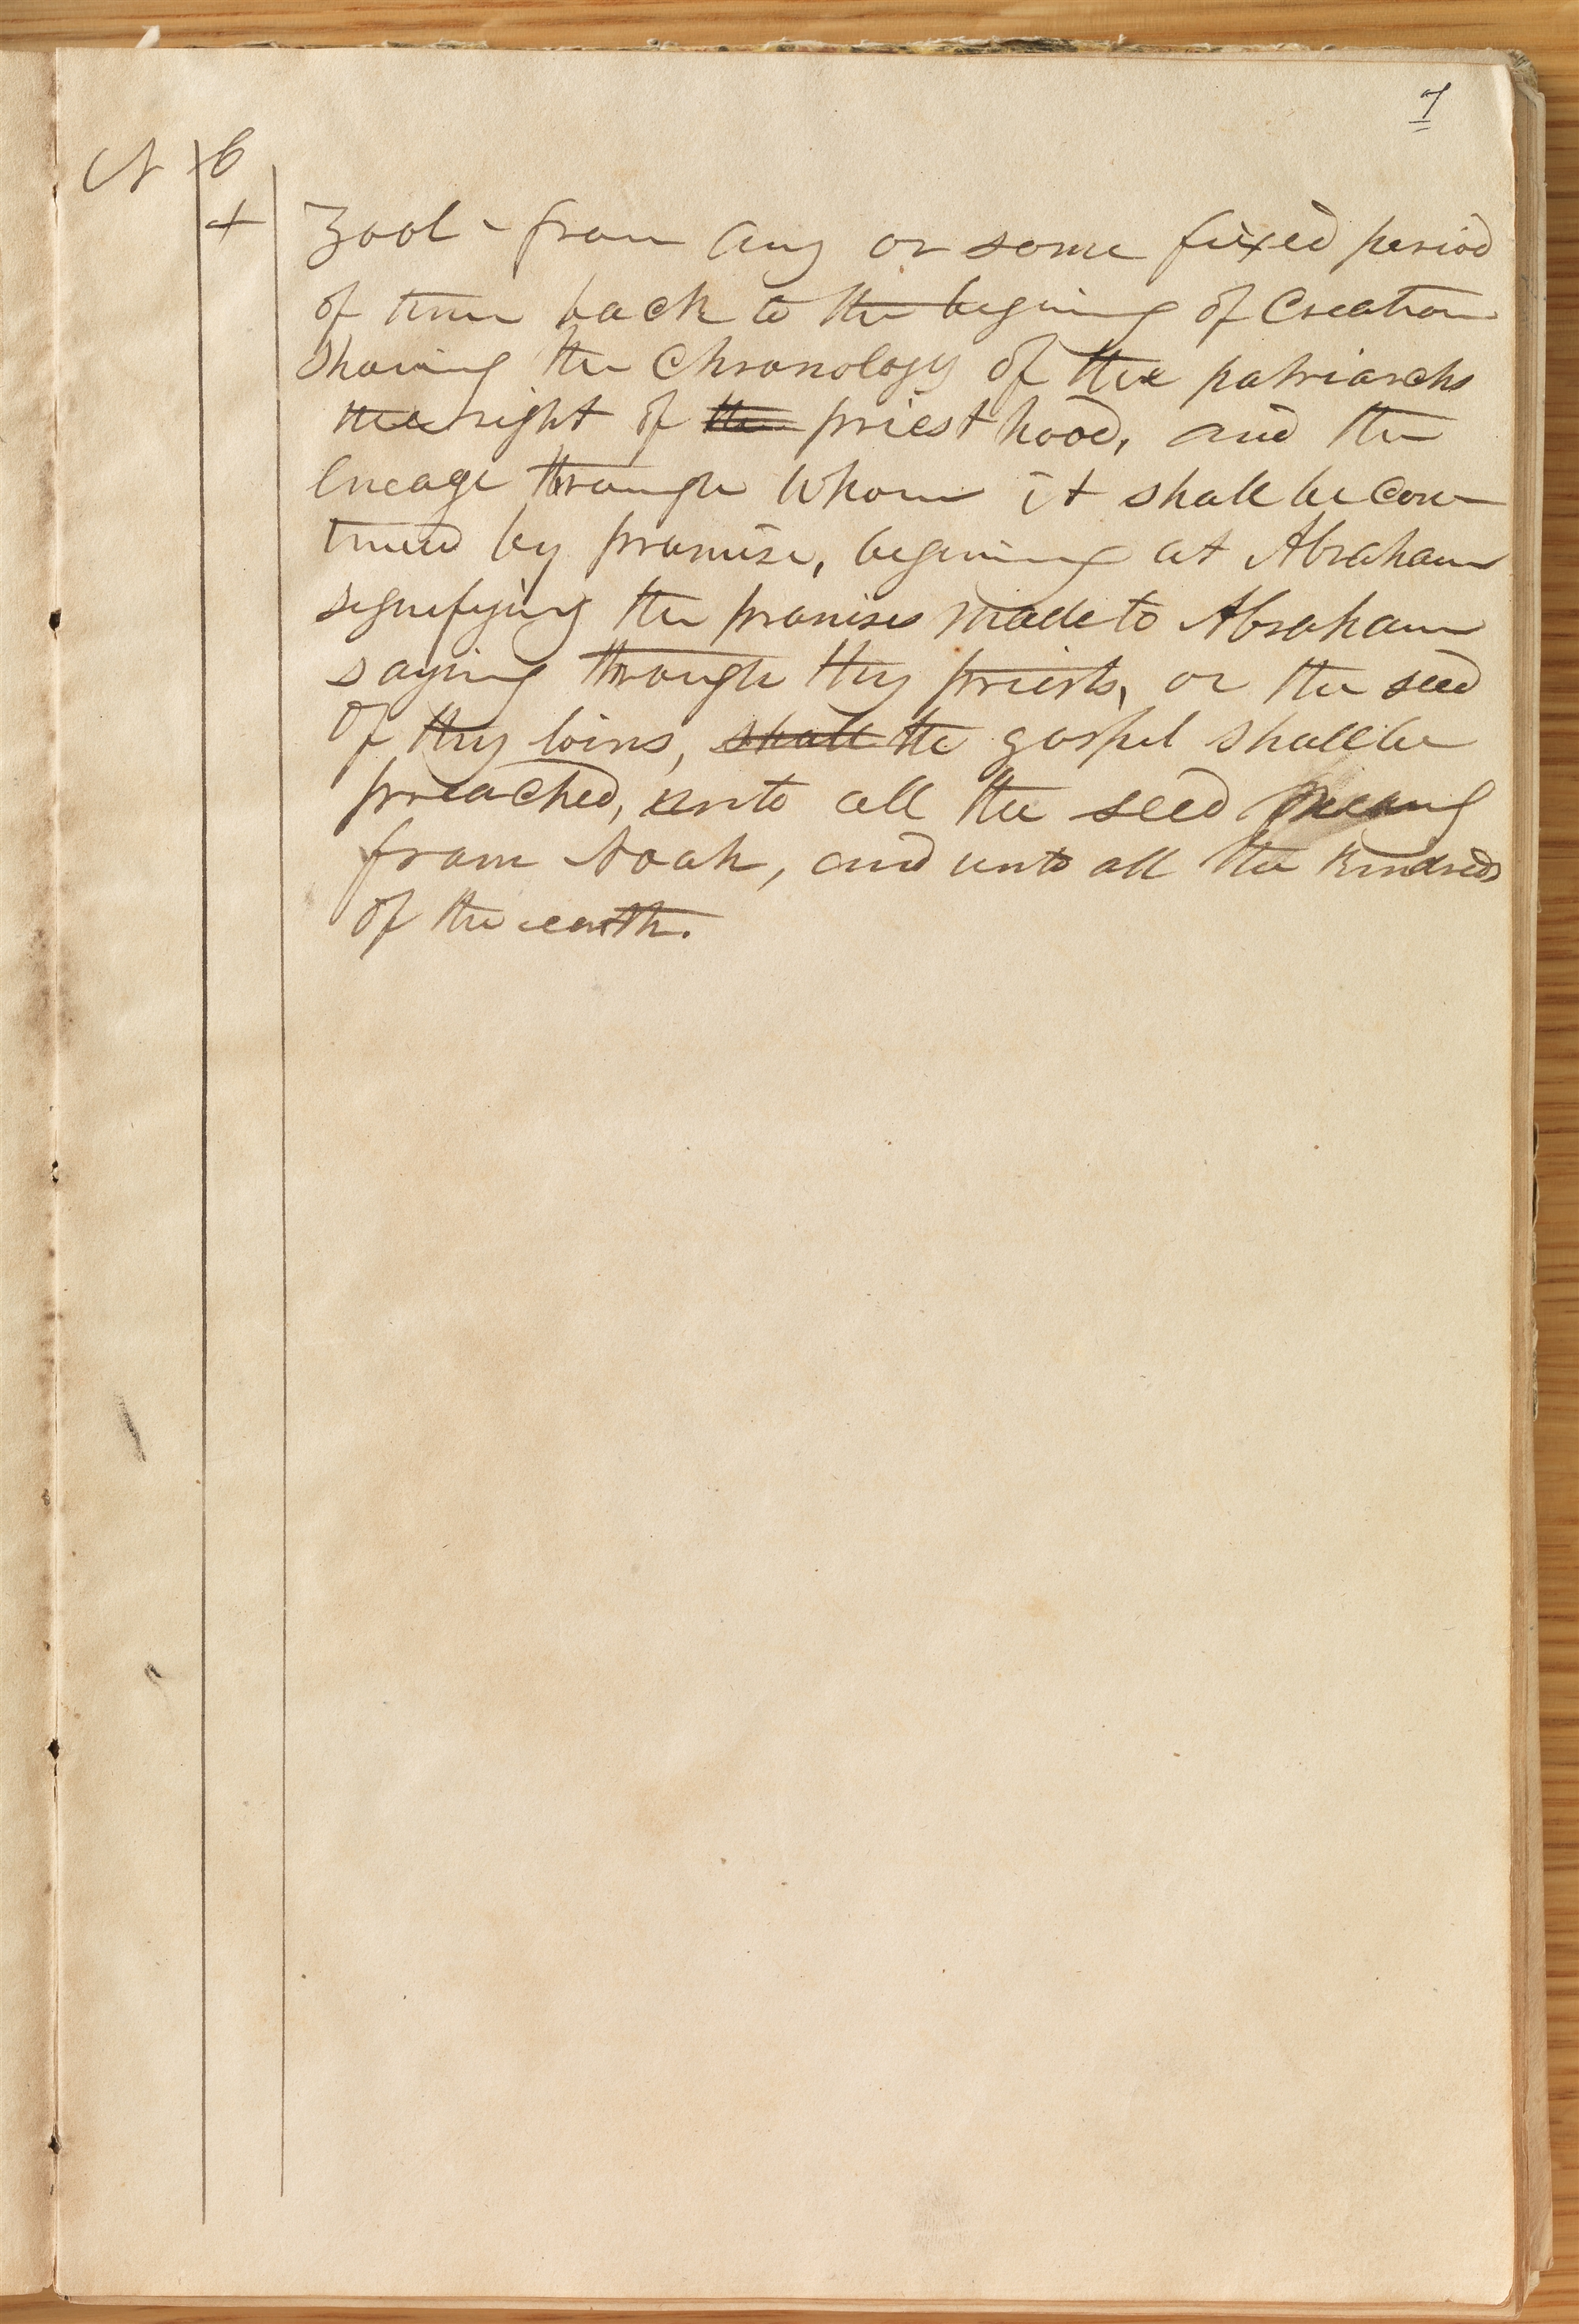 7
N B
+ Zool - from any or some fixed period
of time back to the begining of Creation
shoing the Chronology of the patriarchs
the right of the priest hood, and the
lineage through whom it shall be con
tinued by promise, begining at Abraham
signifying the promises made to Abraham
saying through thy priests, or the seed
of thy loins, shall the gospel shall be
preached, unto all the seed meaning
from Noah, and unto all the kindreds
of the earth.